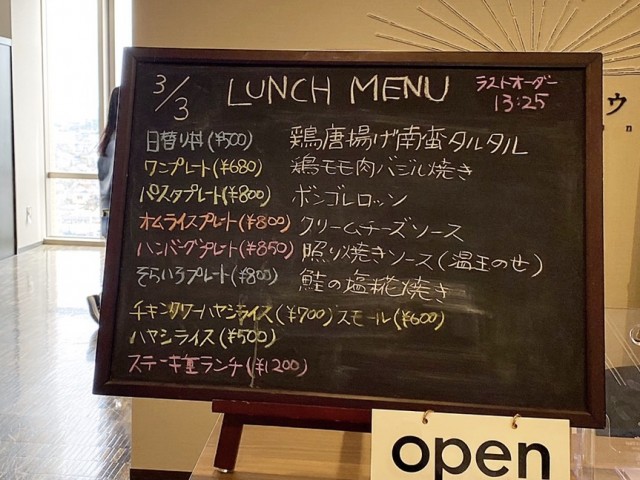 3/3 LUNCH MENU ラストオーダー 13:25
日替り丼(¥500) 鶏唐揚げ南蛮タルタル
ワンプレート(¥680) 鶏モモ肉バジル焼き
パスタプレート(¥800) ボンゴレロッソ
オムライスプレート(¥800) クリームチーズソース
ハンバーグプレート(¥850) 照り焼きソース(温玉のせ)
そらいろプレート(¥800) 鮭の塩糀焼き
チキンクワーハヤシライス(¥700) スモール(¥600)
ハヤシライス(¥500)
ステーキ重ランチ(¥1200)
open
ウ
n